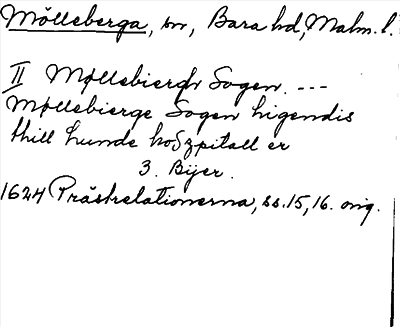 Mölleberga, sn, Bara hd, Malm. l.
II Møllebierghr Sogen. ---
Møllebierge Sogen liigendis
thill Lunde hoszpitall er
3. Bÿer.
1624 Prästrelationerna, ss. 15, 16. orig.